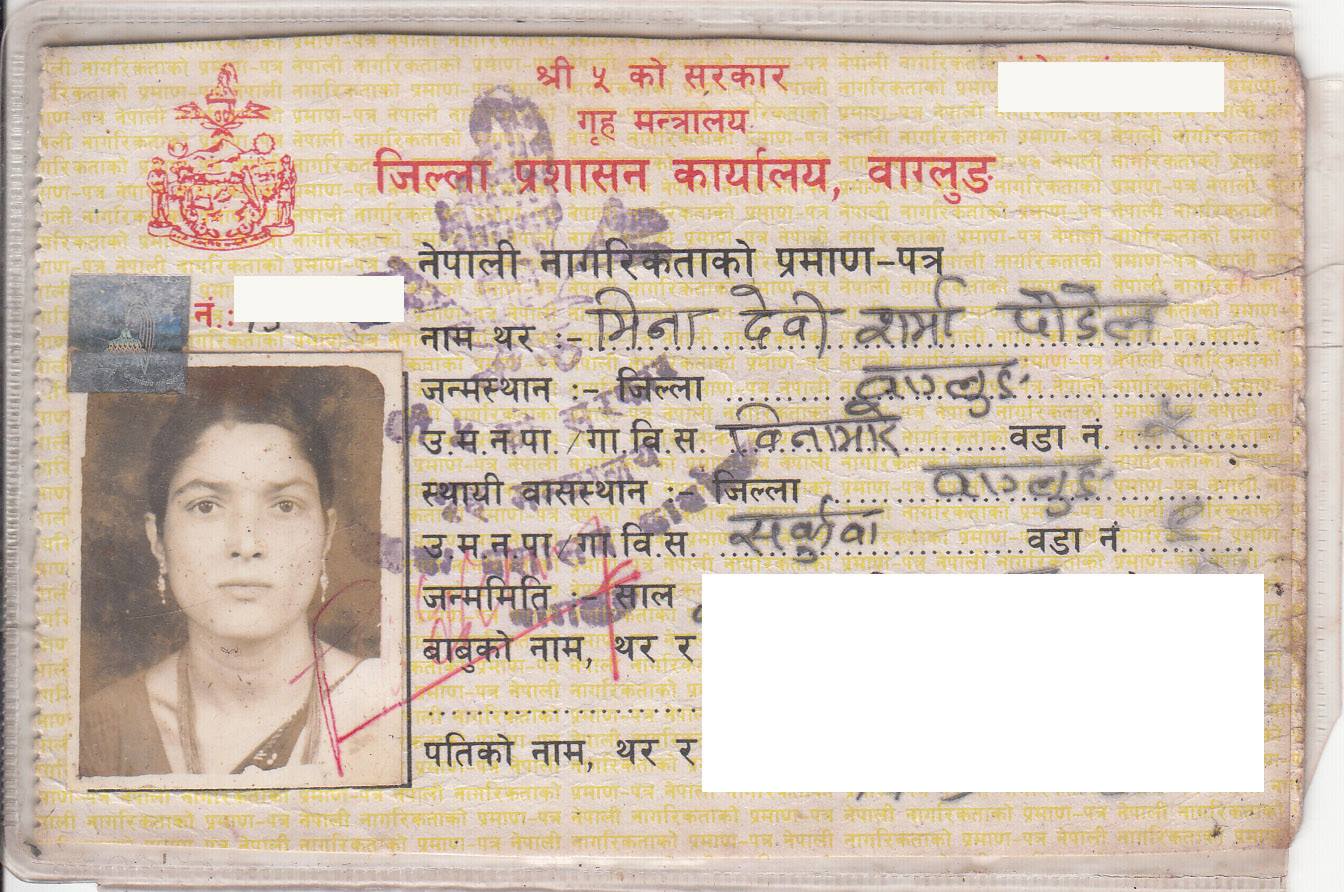 श्री ५ को सरकार
गृह मन्त्रालय
जिल्ला प्रशासन कार्यालय, वाग्लुङ
नेपाली नागरिकताको प्रमाण-पत्र
नं.:
नाम थर :- मिना देवी शर्मा पौडेल
जन्मस्थान :- जिल्ला वाग्लुङ
उ.म.न.पा./गा.वि.स. वडा नं.
स्थायी वासस्थान :- जिल्ला वाग्लुङ
उ.म.न.पा./गा.वि.स. सर्कुवा वडा नं. ९
जन्ममिति :- साल
बाबुको नाम, थर र
पतिको नाम, थर र